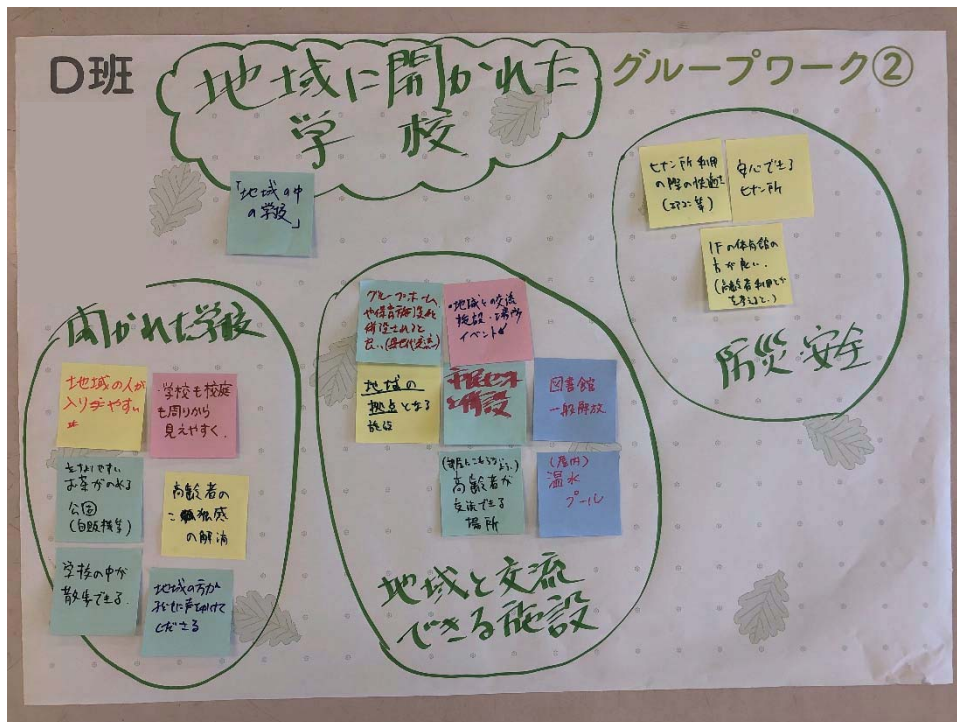 D班
地域に開かれた
学校
グループワーク②
「地域の中
の学校」
開かれた学校
地域の人が
入りやすい
・学校も校庭
も周りから
見えやすく.
お茶がのめる
公園
(自販機等)
高齢者の
孤独感
の解消
学校の中が
散歩できる.
地域の方が
声をかけて
くださる
グループホーム
や保育施設も
併設されると
良い(多世代交流)
・地域との交流
施設・場所
イベント
地域の
拠点となる
施設
と併設
図書館
一般解放
高齢者が
交流できる
場所
(屋内)
温水
プール
地域と交流
できる施設
ヒナン所利用
の際の快適さ
(エアコン等)
安心できる
ヒナン所
1Fの体育館の
方が良い.
(高齢者利用とか
を考えると.)
防災・安全